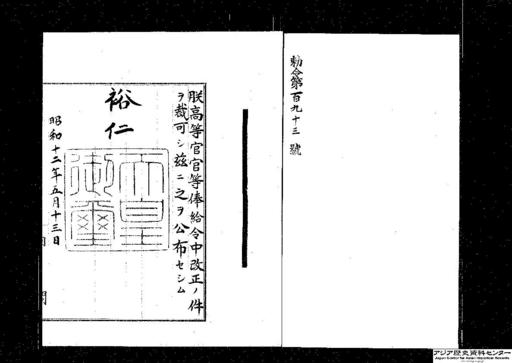 勅令第百九十三號
朕高等官官等俸給令中改正ノ件
ヲ裁可シ茲ニ之ヲ公布セシム
裕仁
天皇
御璽
昭和十二年五月十三日
アジア歴史資料センター
Japan Center for Asian Historical Records